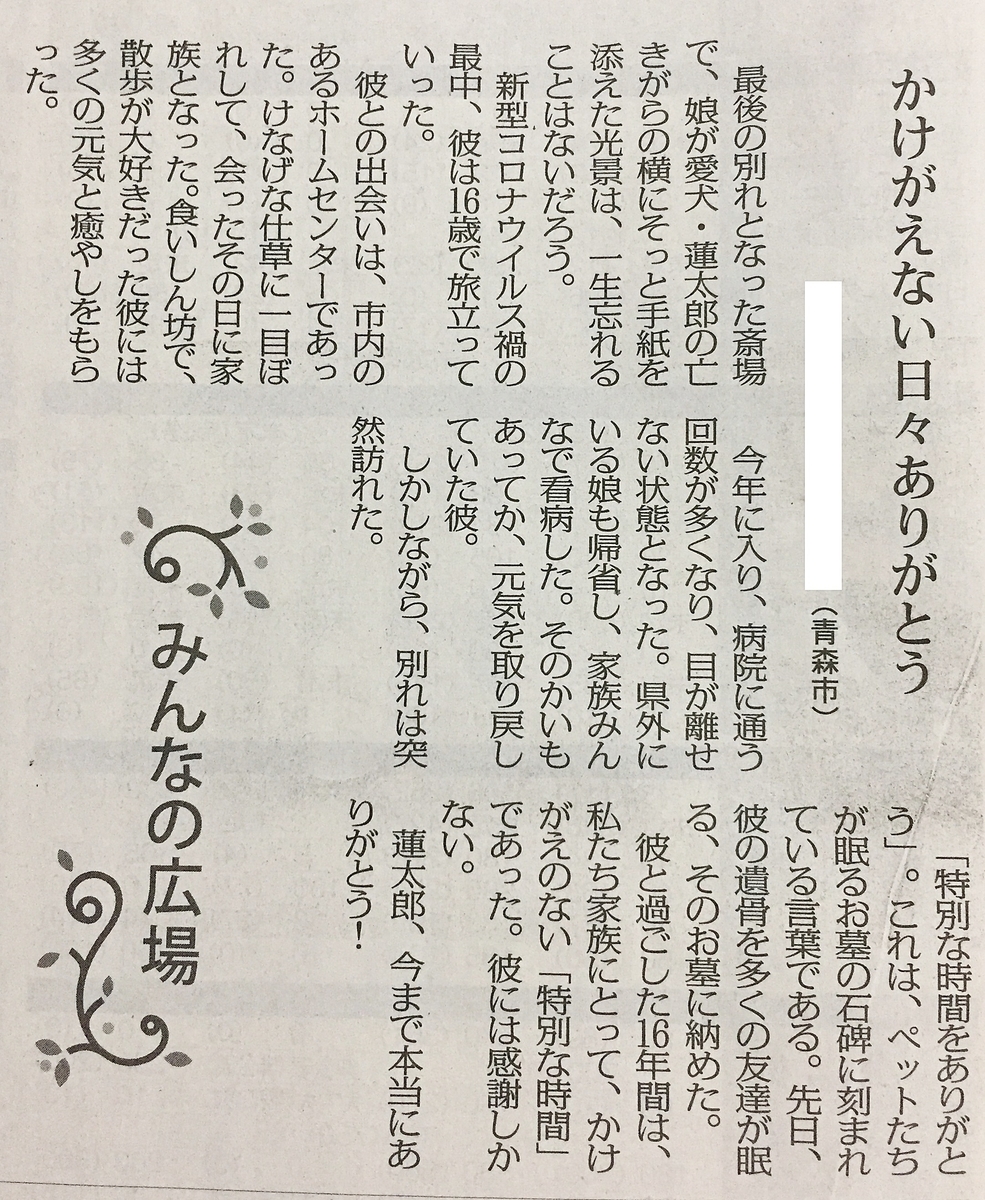 かけがえない日々ありがとう
（青森市）
最後の別れとなった斎場
で、娘が愛犬・蓮太郎の亡
きがらの横にそっと手紙を
添えた光景は、一生忘れる
ことはないだろう。
新型コロナウイルス禍の
最中、彼は16歳で旅立って
いった。
彼との出会いは、市内の
あるホームセンターであっ
た。けなげな仕草に一目ぼ
れして、会ったその日に家
族となった。食いしん坊で、
散歩が大好きだった彼には
多くの元気と癒やしをもら
った。
今年に入り、病院に通う
回数が多くなり、目が離せ
ない状態となった。県外に
いる娘も帰省し、家族みん
なで看病した。そのかいも
あってか、元気を取り戻し
ていた彼。
しかしながら、別れは突
然訪れた。
「特別な時間をありがと
う」。これは、ペットたち
が眠るお墓の石碑に刻まれ
ている言葉である。先日、
彼の遺骨を多くの友達が眠
る、そのお墓に納めた。
彼と過ごした16年間は、
私たち家族にとって、かけ
がえのない「特別な時間」
であった。彼には感謝しか
ない。
蓮太郎、今まで本当にあ
りがとう！
みんなの広場